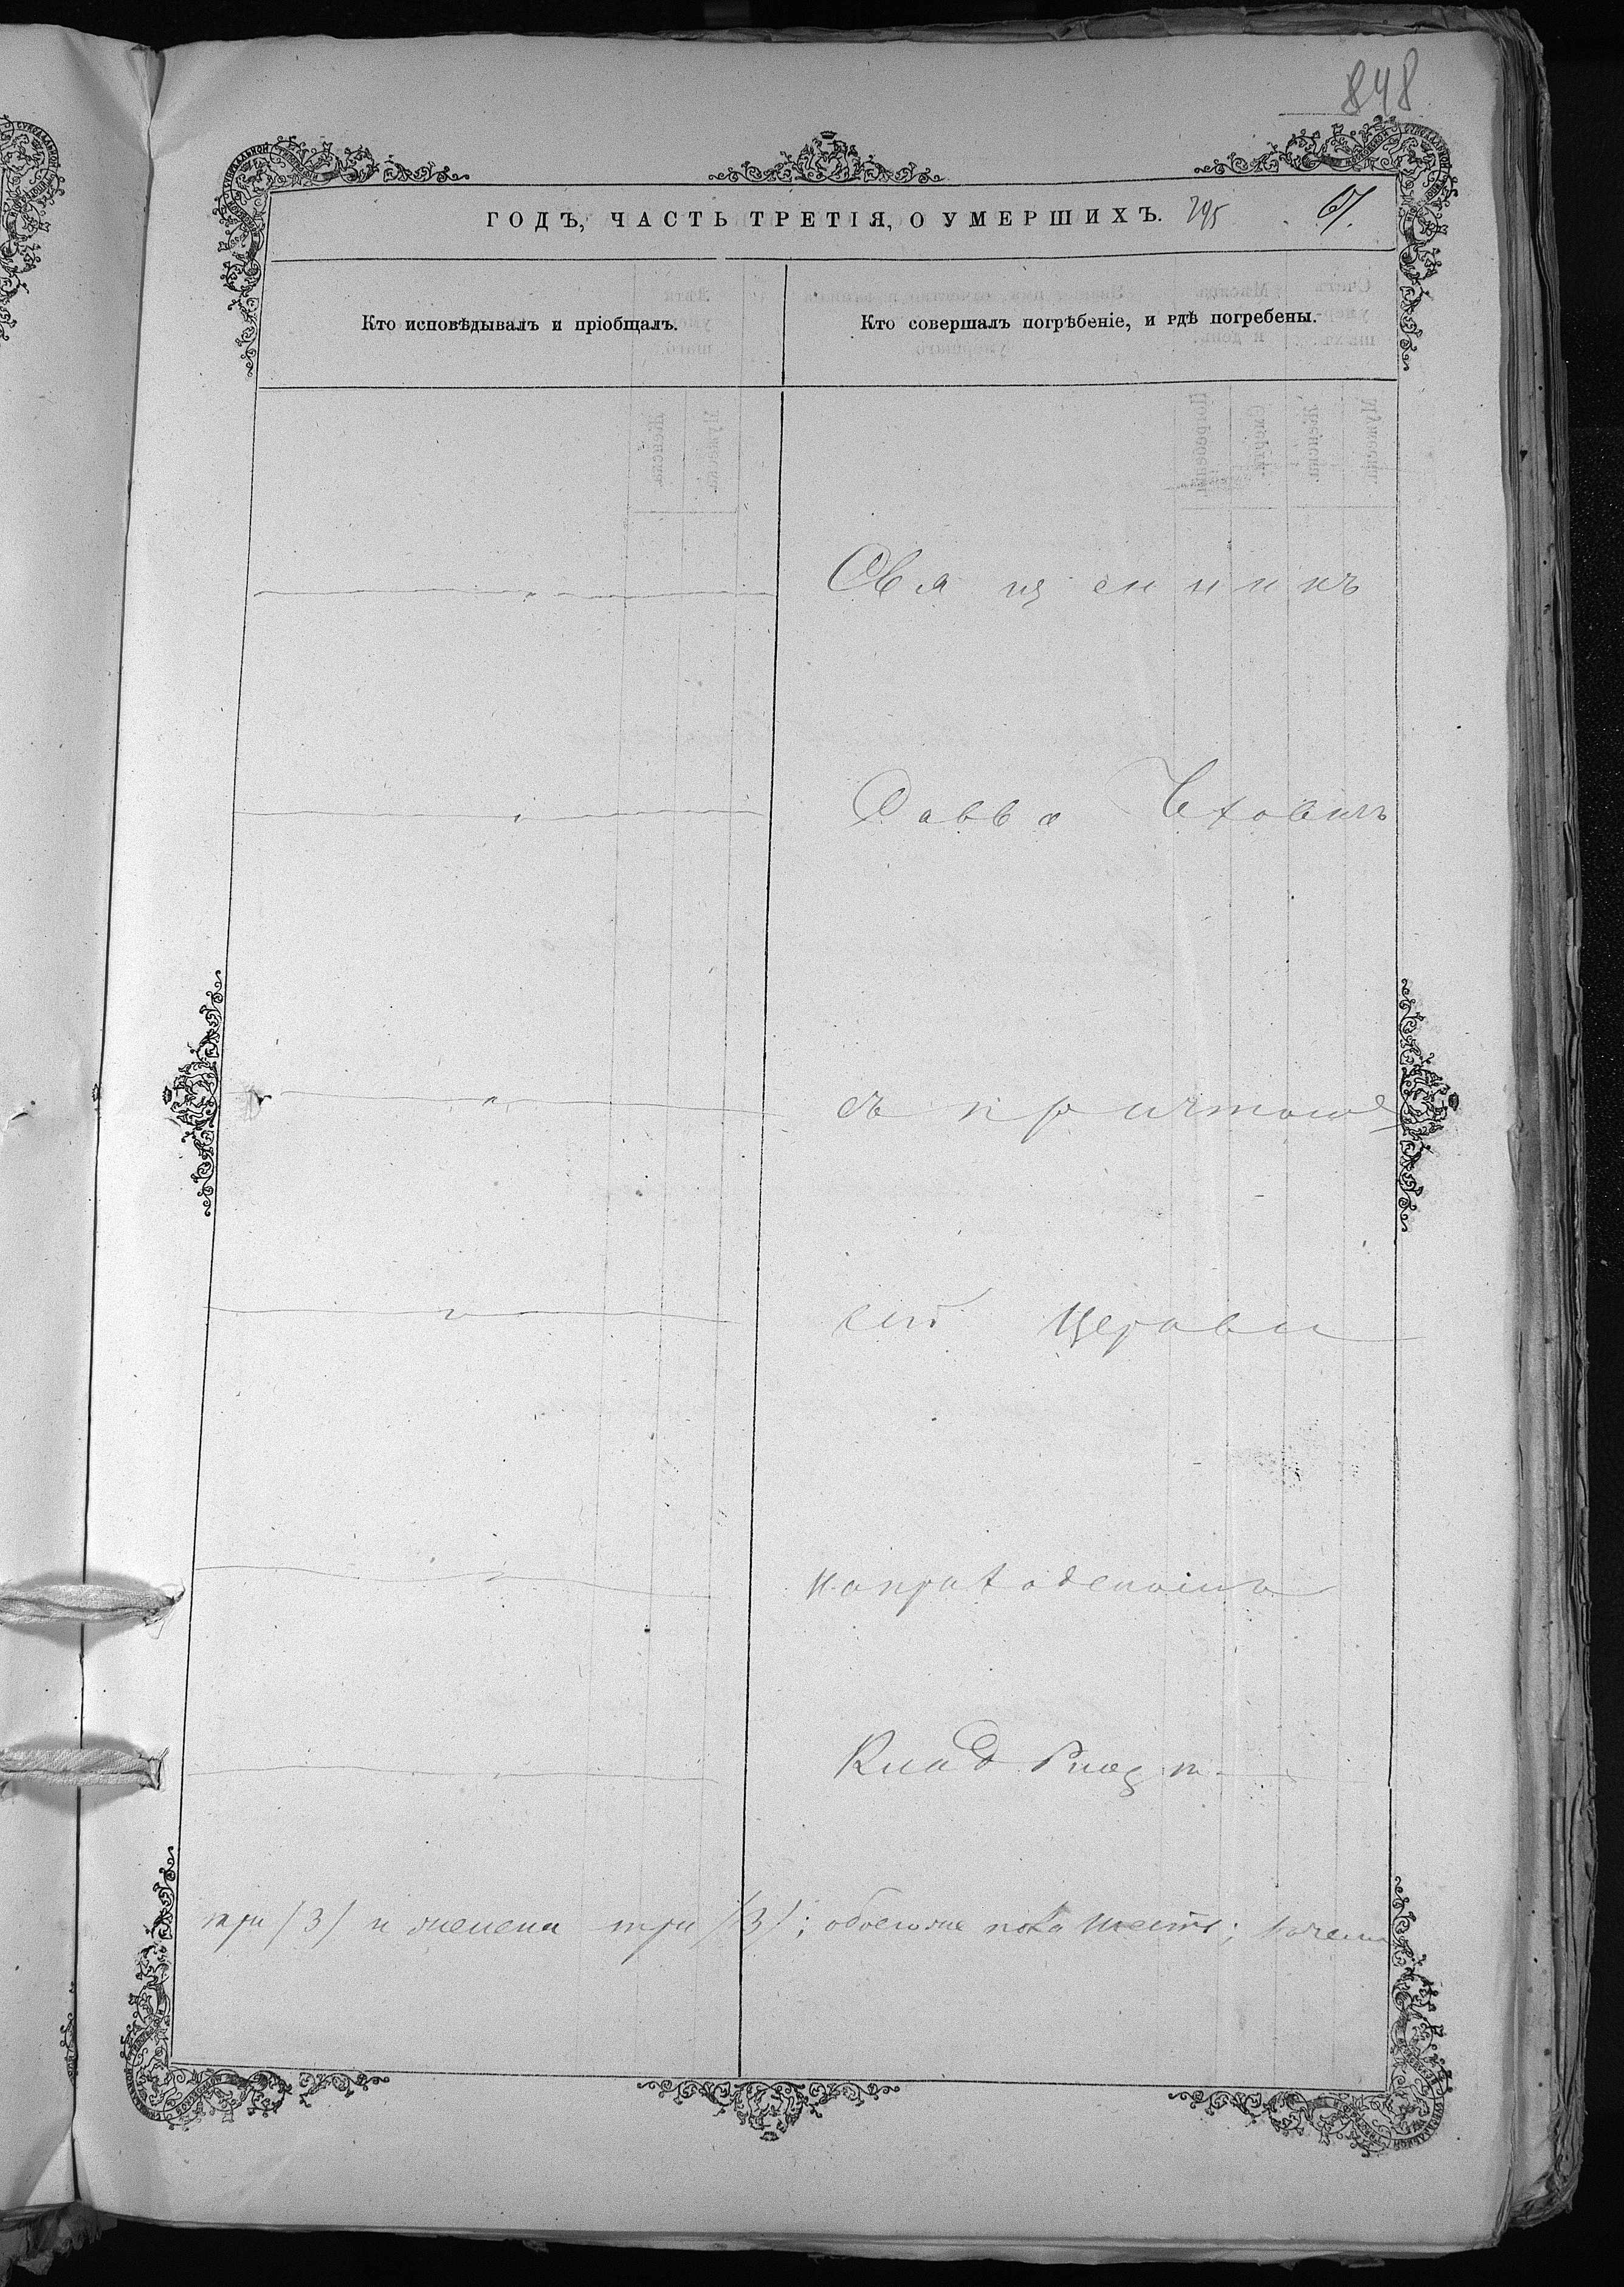 848
ГОДЪ, ЧАСТЬ ТРЕТІЯ, О УМЕРШИХЪ. 295 67.
Кто исповѣдывалъ и пріобщалъ.
Кто совершалъ погрѣбеніе, и гдѣ погребены.
Священникъ
Савва Чеховичъ
съ причтомъ
сей Церкви
на приходскомъ
Кладбищѣ
три (3) и женска три (3); обоего же пола шесть;